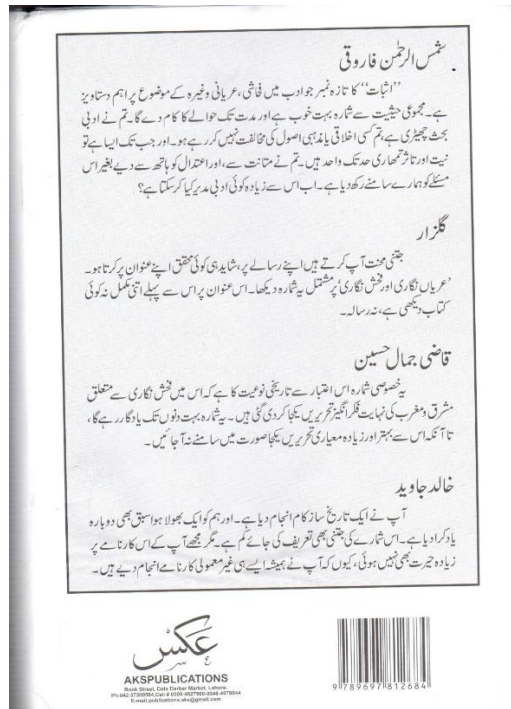 شمس الرحمٰن فاروقی
”اثبات“ کا تازہ نمبر جو ادب میں فحاشی، عریانی وغیرہ کے موضوع پر اہم دستاویز
ہے۔ مجموعی حیثیت سے شمارہ بہت خوب ہے اور مدت تک حوالے کا کام دے گا۔ تم نے ادبی
بحث چھیڑی ہے، تم کسی اخلاقی یا مذہبی اصول کی مخالفت نہیں کر رہے ہو۔ اور جب تک ایسا ہے تو
نیت اور تاثر تمھاری حد تک واحد ہیں۔ تم نے متانت سے، اور اعتدال کو ہاتھ سے دیے بغیر اس
مسئلے کو ہمارے سامنے رکھ دیا ہے۔ اب اس سے زیادہ کوئی ادبی مدیر کیا کر سکتا ہے؟
گلزار
جتنی محنت آپ کرتے ہیں اپنے رسالے پر، شاید ہی کوئی محقق اپنے عنوان پر کرتا ہو۔
’عریاں نگاری اور فحش نگاری‘ پر مشتمل یہ شمارہ دیکھا۔ اس عنوان پر اس سے پہلے اتنی مکمل نہ کوئی
کتاب دیکھی ہے، نہ رسالہ۔
قاضی جمال حسین
یہ خصوصی شمارہ اس اعتبار سے تاریخی نوعیت کا ہے کہ اس میں فحش نگاری سے متعلق
مشرق و مغرب کی نہایت فکر انگیز تحریریں یکجا کر دی گئی ہیں۔ یہ شمارہ بہت دنوں تک یادگار رہے گا،
تا آنکہ اس سے بہتر اور زیادہ معیاری تحریریں یکجا صورت میں سامنے نہ آ جائیں۔
خالد جاوید
آپ نے ایک تاریخ ساز کام انجام دیا ہے۔ اور ہم کو ایک بھولا ہوا سبق بھی دوبارہ
یاد کرا دیا ہے۔ اس شمارے کی جتنی بھی تعریف کی جائے کم ہے۔ مگر مجھے آپ کے اس کارنامے پر
زیادہ حیرت بھی نہیں ہوئی، کیوں کہ آپ نے ہمیشہ ایسے ہی غیر معمولی کارنامے انجام دیے ہیں۔
عکس
AKSPUBLICATIONS
Book Street, Data Darbar Market, Lahore.
E-mail:publications.aks@gmail.com
9 789697 812684